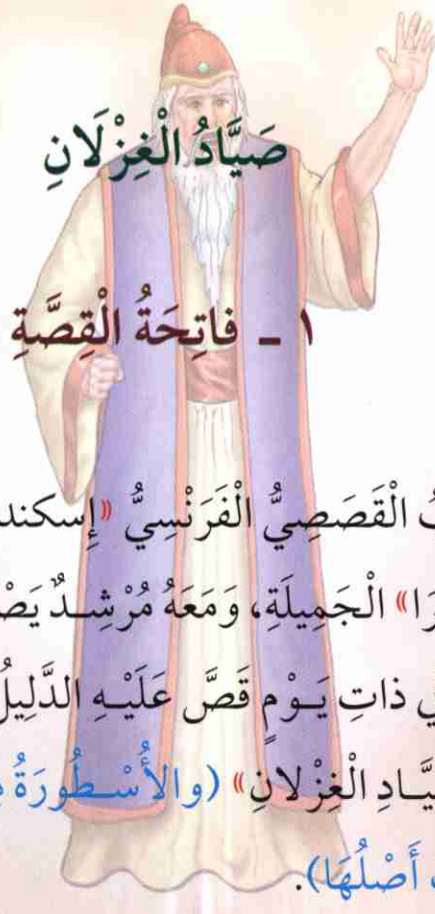 صَيَّادُ الْغِزْلَانِ
١ - فاتِحَةُ الْقِصَّةِ
الْقَصَصِيُّ الْفَرَنْسِيُّ «إِسكند
الْجَمِيلَةِ، وَمَعَهُ مُرْشِدٌ
ذاتِ يَوْمٍ قَصَّ عَلَيْهِ الدَّلِيلُ
الْغِزْلانِ» (والأُسْطُورَةُ
أَصْلُهَا).